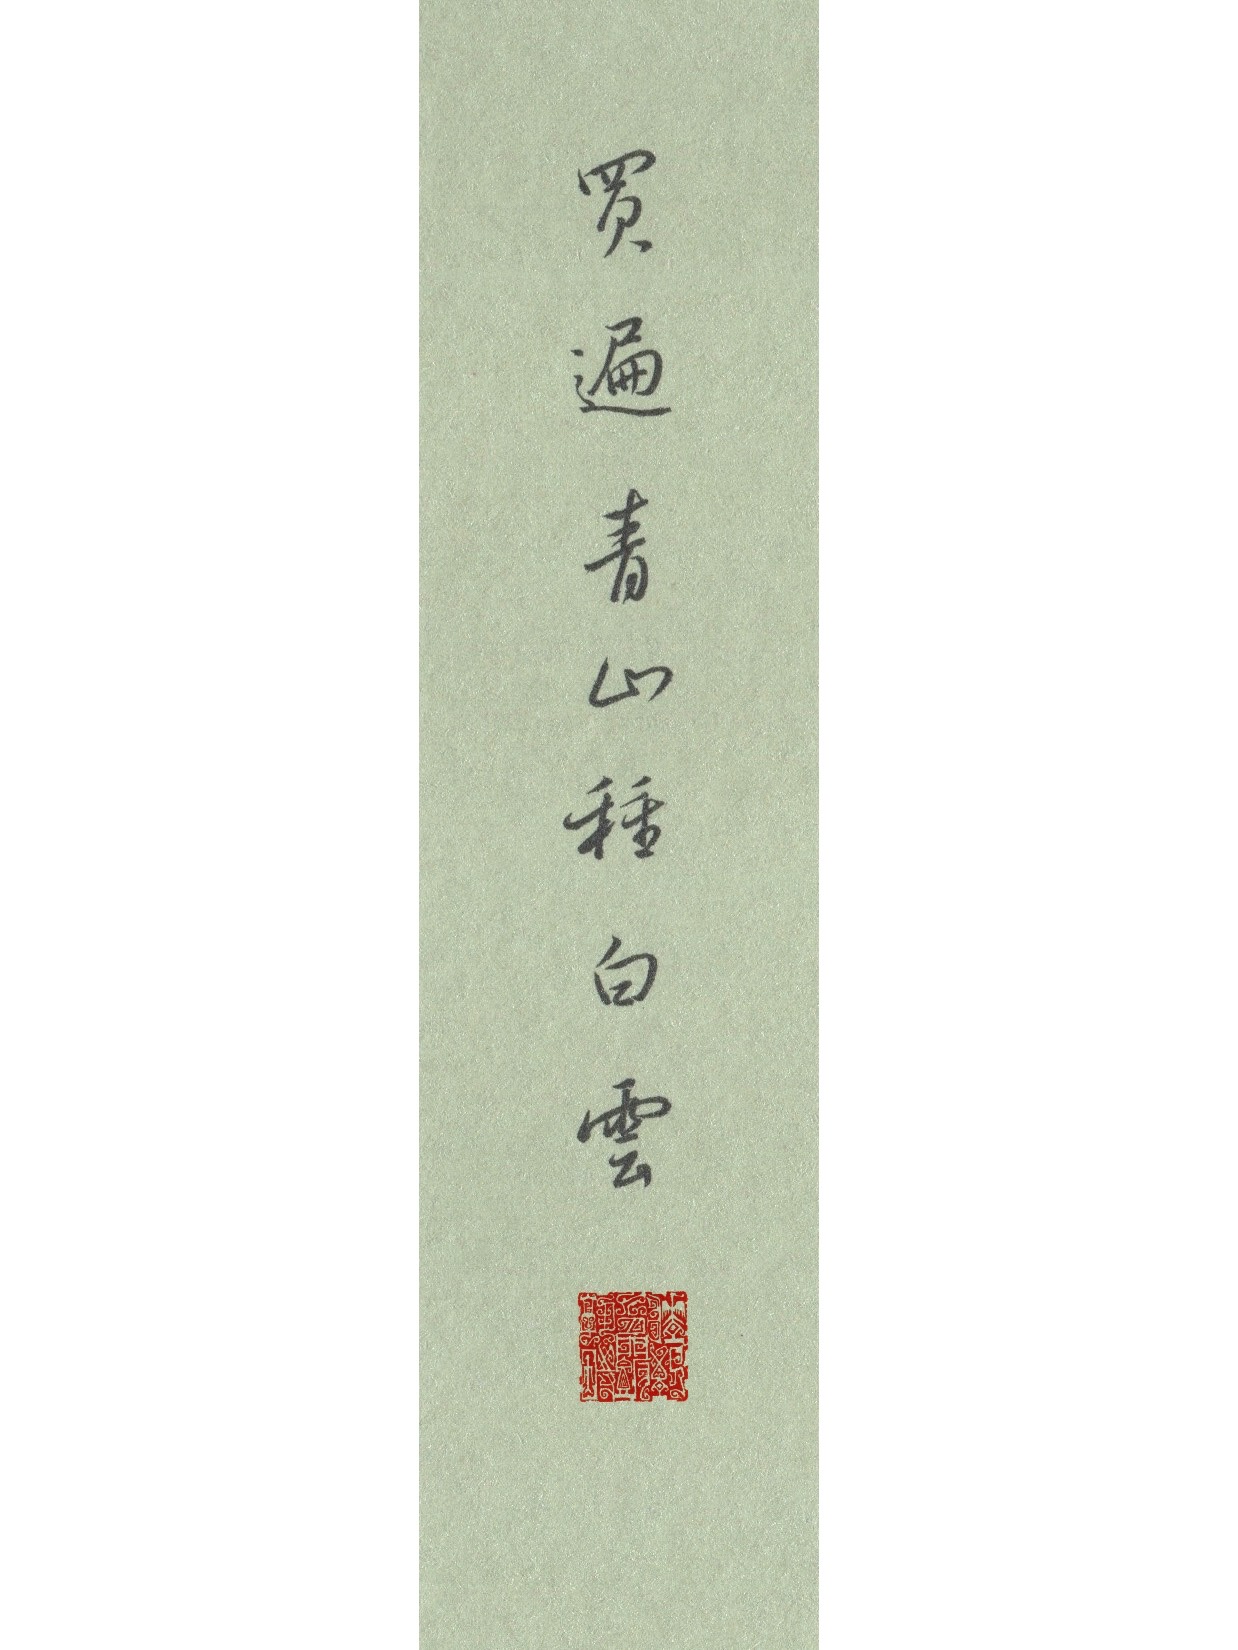 買遍青山種白雲